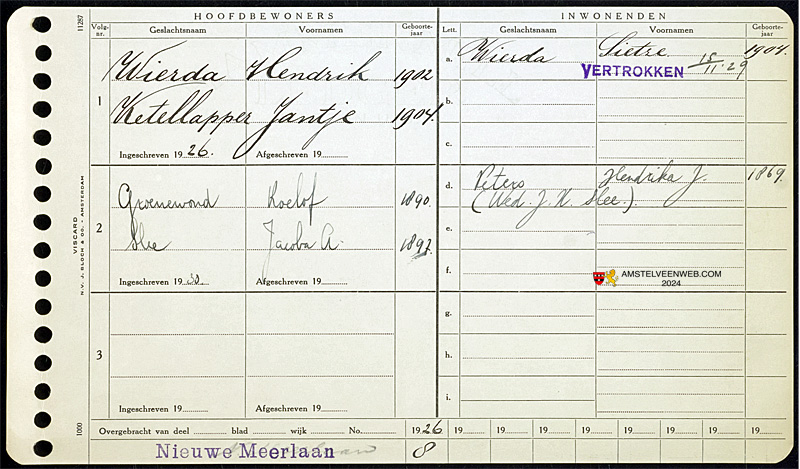 HOOFDBEWONERS
Volg-nr. Geslachtsnaam Voornamen Geboorte-jaar
1 Wierda Hendrik 1902
Ketellapper Jantje 1904.
Ingeschreven 1926. Afgeschreven 19
2 Groenewoud Roelof 1890.
Slee Jacoba A. 1892.
Ingeschreven 1930. Afgeschreven 19
3
Ingeschreven 19 Afgeschreven 19
INWONENDEN
Lett. Geslachtsnaam Voornamen Geboorte-jaar
a. Wierda Sietze. 1904.
VERTROKKEN 15/11-29
b.
c.
d. Peters Hendrika J. 1869.
(Wed. J. H. Slee.)
e.
f.
AMSTELVEENWEB.COM
2024
g.
h.
i.
Overgebracht van deel blad wijk No. 1926 19 19 19 19 19 19 19 19
Nieuwe Meerlaan 8
11287
VISCARD
N.V. J. BLOCH & CO. - AMSTERDAM
1000